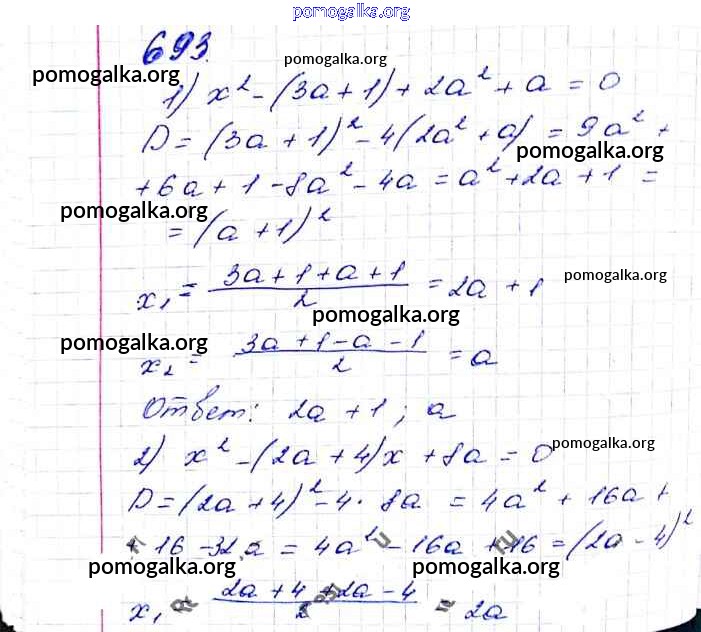 pomogalka.org
693.
pomogalka.org
pomogalka.org
1) x² - (3a + 1) + 2a² + a = 0
D = (3a + 1)² - 4(2a² + a) = 9a² +
pomogalka.org
+ 6a + 1 - 8a² - 4a = a² + 2a + 1 =
pomogalka.org
= (a + 1)²
x₁ = (3a + 1 + a + 1)/2 = 2a + 1
pomogalka.org
pomogalka.org
pomogalka.org
x₂ = (3a + 1 - a - 1)/2 = a
Ответ: 2a + 1; a
pomogalka.org
2) x² - (2a + 4)x + 8a = 0
D = (2a + 4)² - 4 · 8a = 4a² + 16a +
+ 16 - 32a = 4a² - 16a + 16 = (2a - 4)²
pomogalka.org
pomogalka.org
x₁ = (2a + 4 + 2a - 4)/2 = 2a